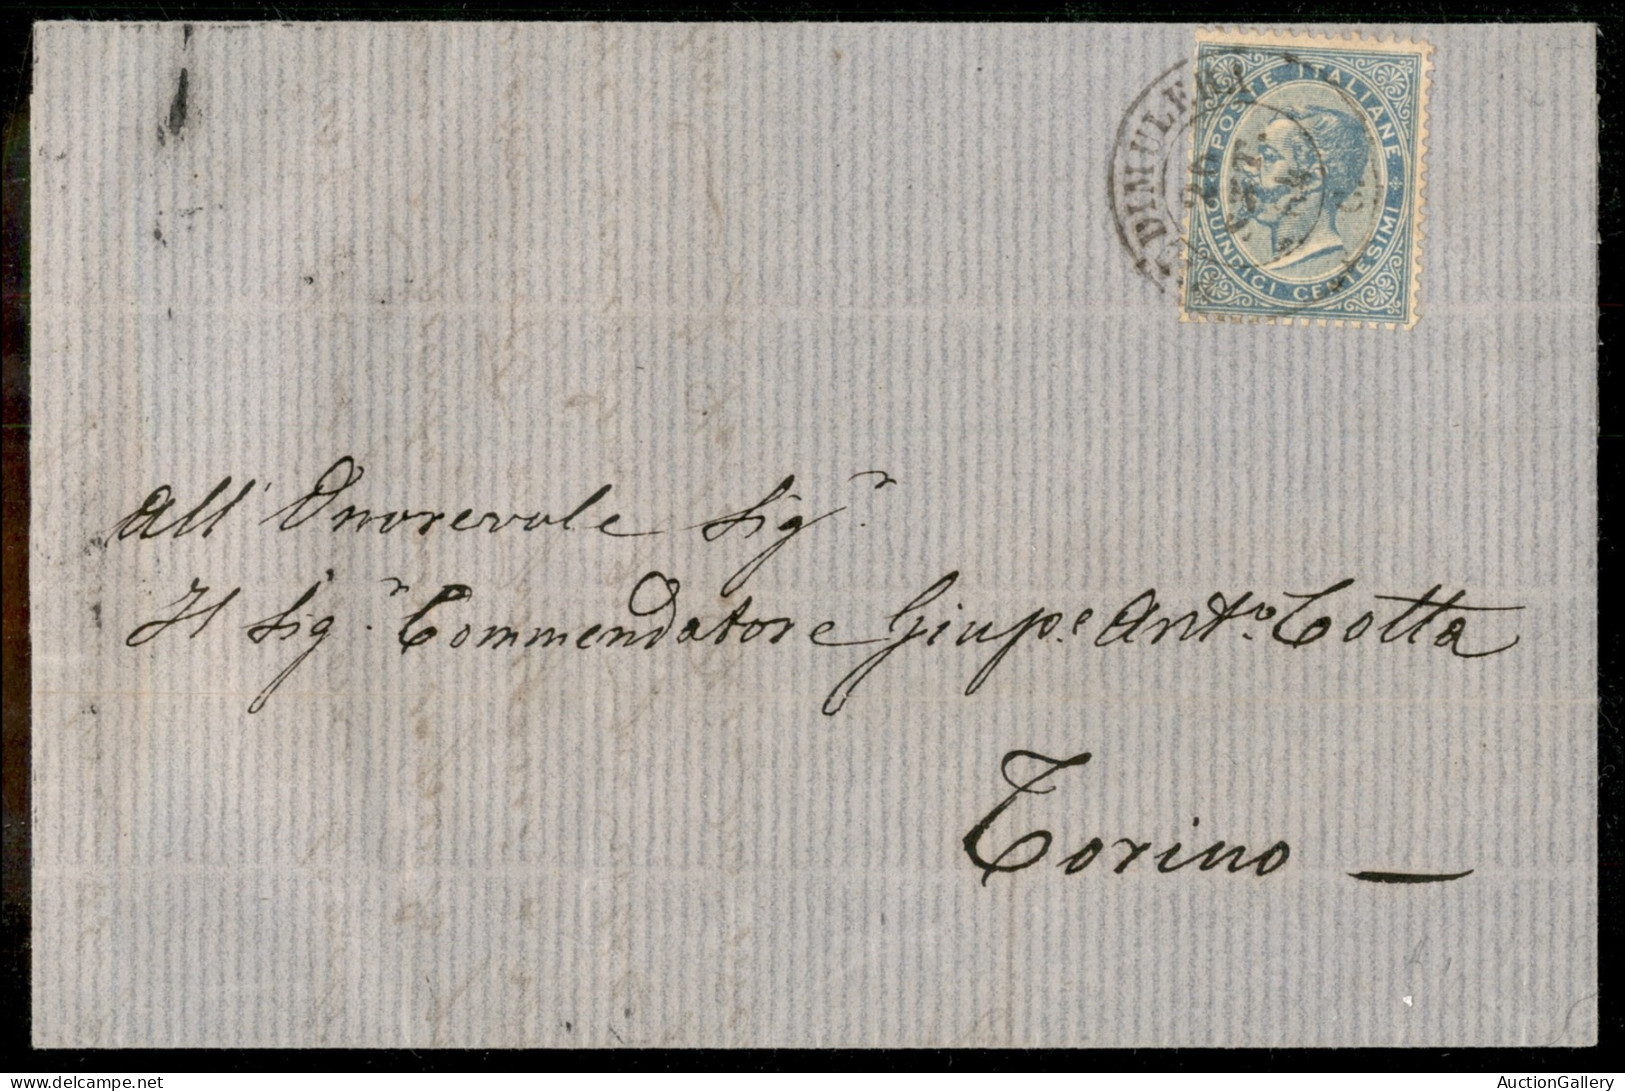 POSTE ITALIANE
QUINDICI CENTESIMI
20
All' Onorevole Sig.r
Il Sig.r Commendatore Giup.e Ant.o Cotta
Torino —
AuctionGallery
delcampe.net